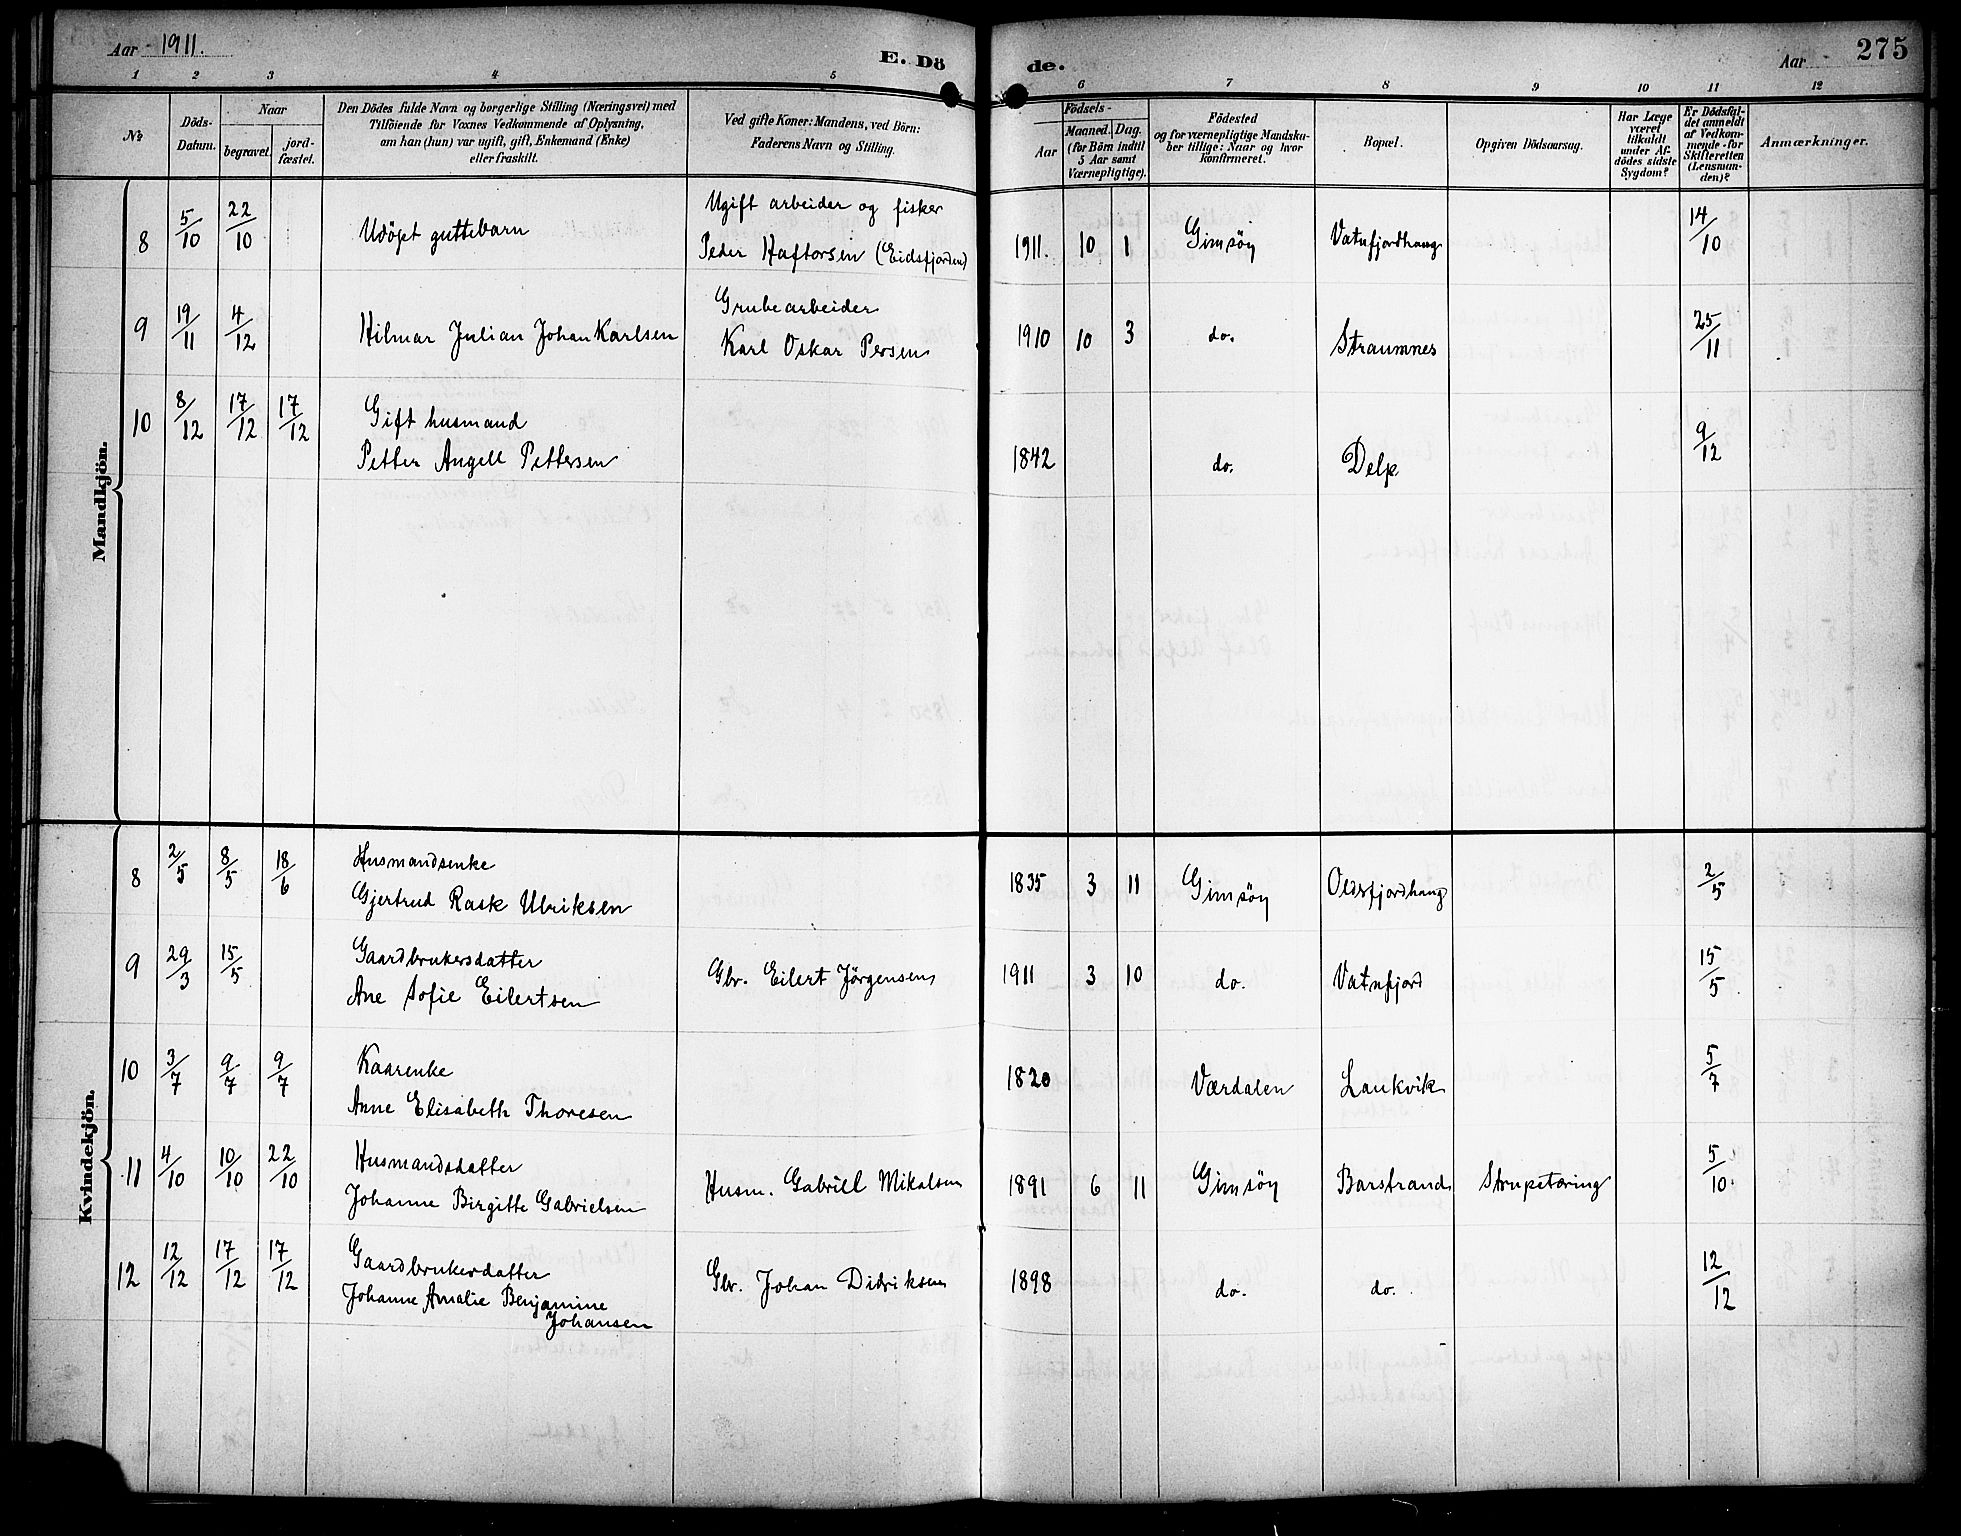 Aar 1911.
E. Dö
de.
Aar
275
1 2 3 4 5 6 7 8 9 10 11 12
No
Döds-
Datum.
Naar
begravet.
jord-
fæstet.
Den Dödes fulde Navn og borgerlige Stilling (Næringsvei) med
Tilföiende for Voxnes Vedkommende af Oplysning,
om han (hun) var ugift, gift, Enkemand (Enke)
eller fraskilt.
Ved gifte Koner: Mandens, ved Börn:
Faderens Navn og Stilling.
Födsels-
Aar
Maaned. Dag.
(for Börn indtil
5 Aar samt
Værnepligtige).
Födested
og for værnepligtige Mandska-
ber tillige: Naar og hvor
konfirmeret.
Bopæl.
Opgiven Dödsaarsag.
Har Læge
været
tilkaldt
under Af-
dödes sidste
Sygdom?
Er Dödsfal-
det anmeldt
af Vedkom-
mende for
Skifteretten
(Lensman-
den)?
Anmærkninger.
Mandkjön.
8 5/10 22/10 Udöpt guttebarn Ugift arbeider og fisker
Peder Haftorsen (Eidsfjorden) 1911. 10 1 Gimsöy Vatnfjordhaug 14/10
9 19/11 4/12 Hilmar Julian Johan Karlsen Grubearbeider
Karl Oskar Persen 1910 10 3 do. Straumnes 25/11
10 8/12 17/12 17/12 Gift husmand
Petter Angell Pettersen 1842 do. Delp 9/12
Kvindekjön.
8 2/5 8/5 18/6 Husmandsenke
Gjertrud Rask Ulriksen 1835 3 11 Gimsöy Oldsfjordhaug 2/5
9 29/3 15/5 Gaardbrukersdatter
Ane Sofie Eilertsen Gbr. Eilert Jörgensen 1911 3 10 do. Vatnfjord 15/5
10 3/7 9/7 9/7 Kaarenke
Anne Elisabeth Thoresen 1820 Værdalen Laukvik 5/7
11 4/10 10/10 22/10 Husmandsdatter
Johanne Birgitte Gabrielsen Husm. Gabriel Mikalsen 1891 6 11 Gimsöy Barstrand Strupetæring 5/10.
12 12/12 17/12 17/12 Gaardbrukersdatter
Johanne Amalie Benjamine
Johansen Gbr. Johan Didriksen 1898 do. do. 12/12